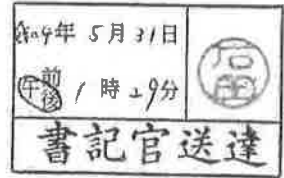 令和4年 5月31日
午前後 1時29分
石田
書記官送達